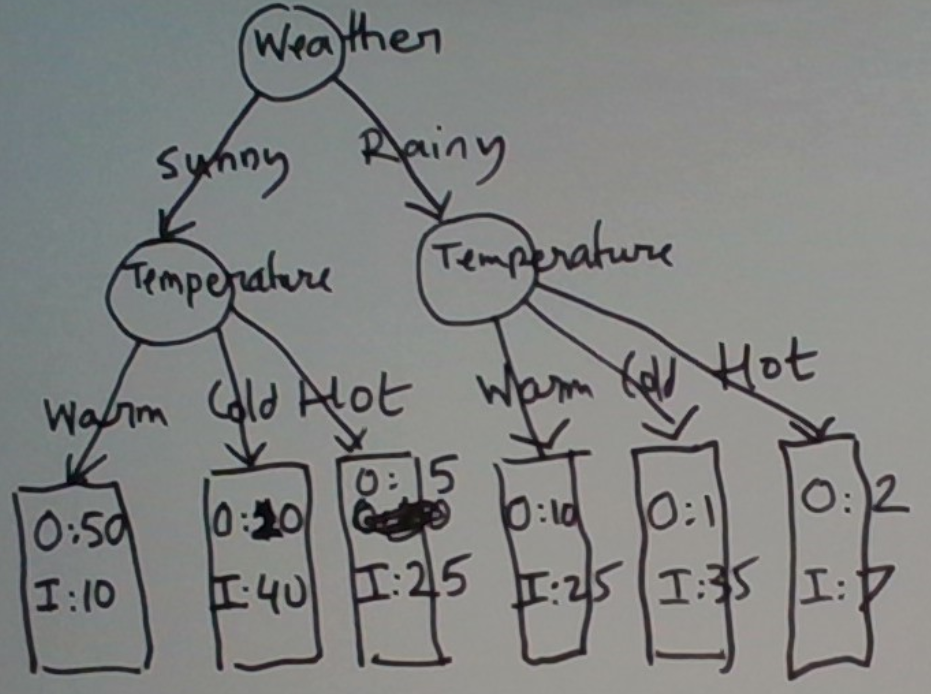 Weather
Sunny Rainy
Temperature Temperature
Warm Cold Hot Warm Cold Hot
O:50
I:10
O:20
I:40
O:15
I:25
O:10
I:25
O:1
I:35
O:2
I:7